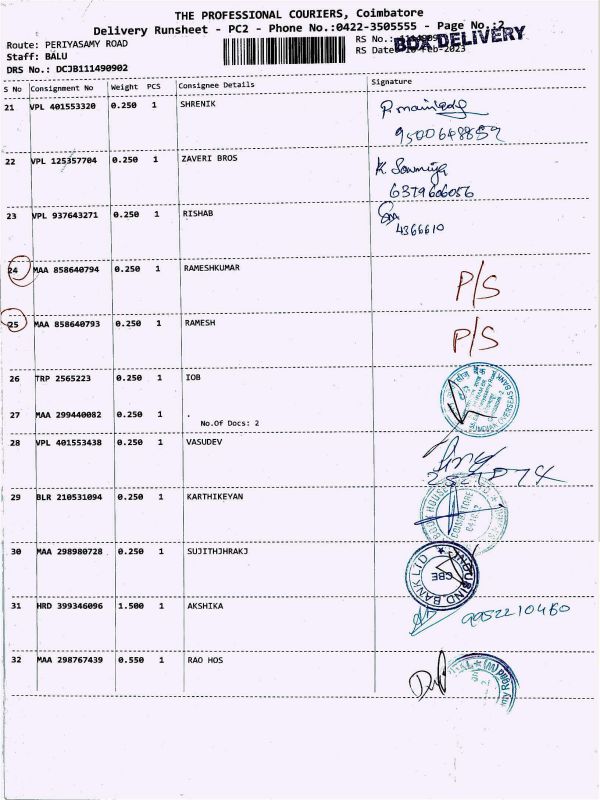 THE PROFESSIONAL COURIERS, Coimbatore
Delivery Runsheet - PC2 - Phone No.:0422-3505555 - Page No.:2
Route: PERIYASAMY ROAD
RS No.:
BOX DELIVERY
Staff: BALU
RS Date: Feb-2023
DRS No.: DCJB111490902
S No Consignment No Weight PCS Consignee Details Signature
21 VPL 401553320 0.250 1 SHRENIK
9500648859
22 VPL 125357704 0.250 1 ZAVERI BROS K. Sowmiya
6379606056
23 VPL 937643271 0.250 1 RISHAB
4366610
24 MAA 858640794 0.250 1 RAMESHKUMAR P/S
25 MAA 858640793 0.250 1 RAMESH P/S
26 TRP 2565223 0.250 1 IOB
OVERSEAS BANK
27 MAA 299440082 0.250 1 .
No.Of Docs: 2
28 VPL 401553438 0.250 1 VASUDEV
29 BLR 210531094 0.250 1 KARTHIKEYAN
COIMBATORE
30 MAA 298980728 0.250 1 SUJITHJHRAKJ
INDUSIND BANK LTD
CBE
31 HRD 399346096 1.500 1 AKSHIKA 9952210460
32 MAA 298767439 0.550 1 RAO HOS